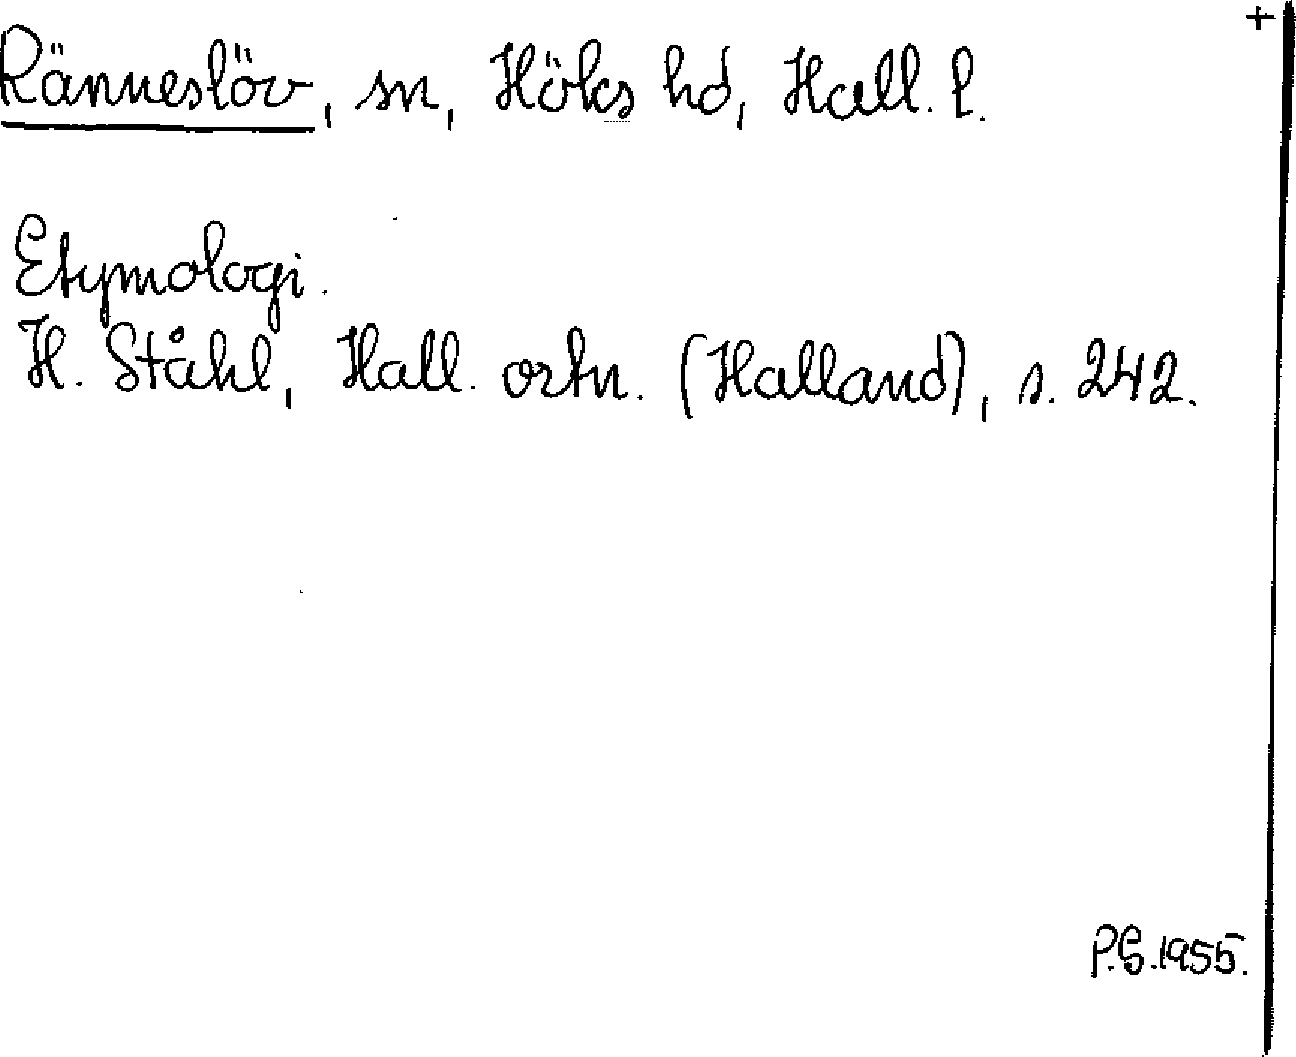 +
Ränneslöv, sn, Höks hd, Hall. l.
Etymologi.
H. Ståhl, Hall. ortn. (Halland), s. 242.
P.G. 1955.